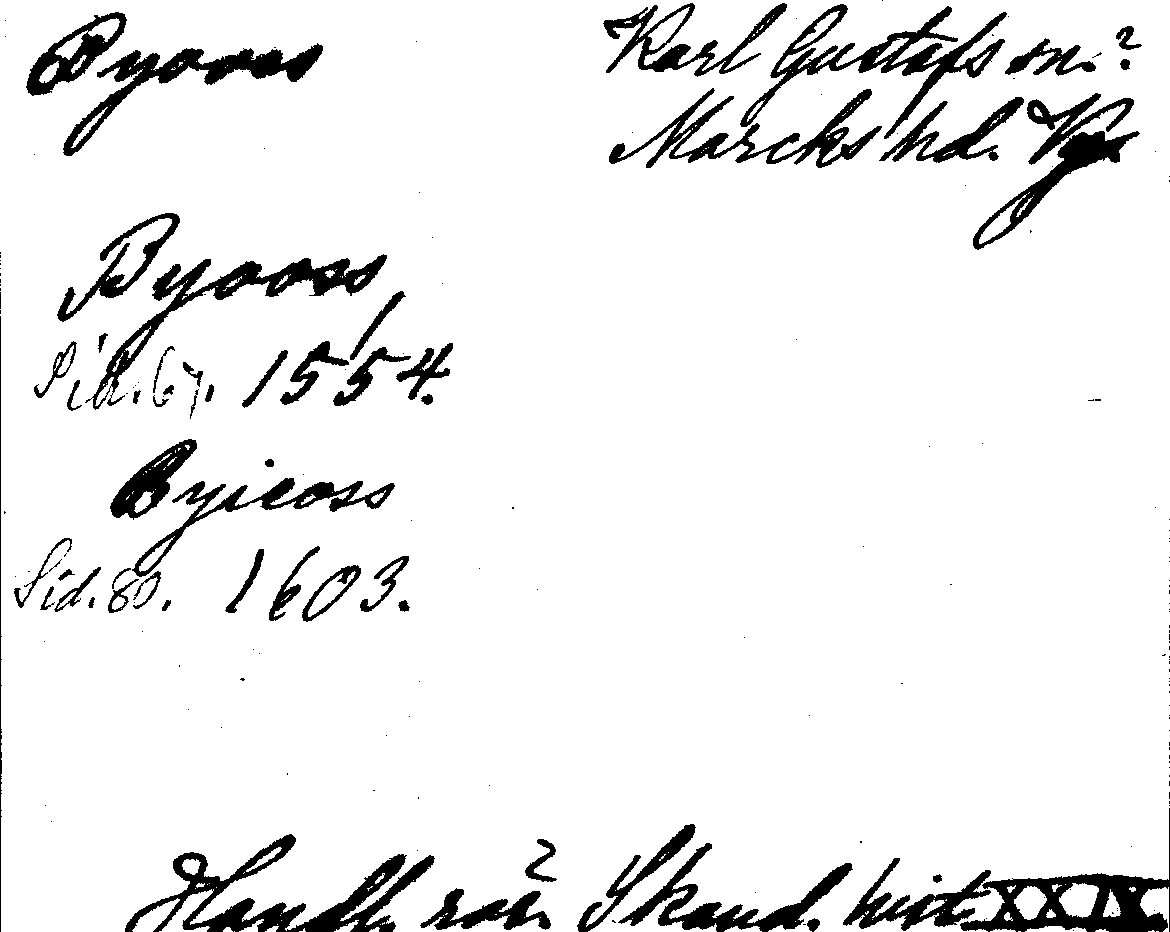 Byooss
Karl Gustafs sn.?
Marcks hd. Vgs
Byooss
Sid. 67. 1554.
Byicoss
Sid. 80. 1603.
Handl. rör. Skand. hist. XXIX.